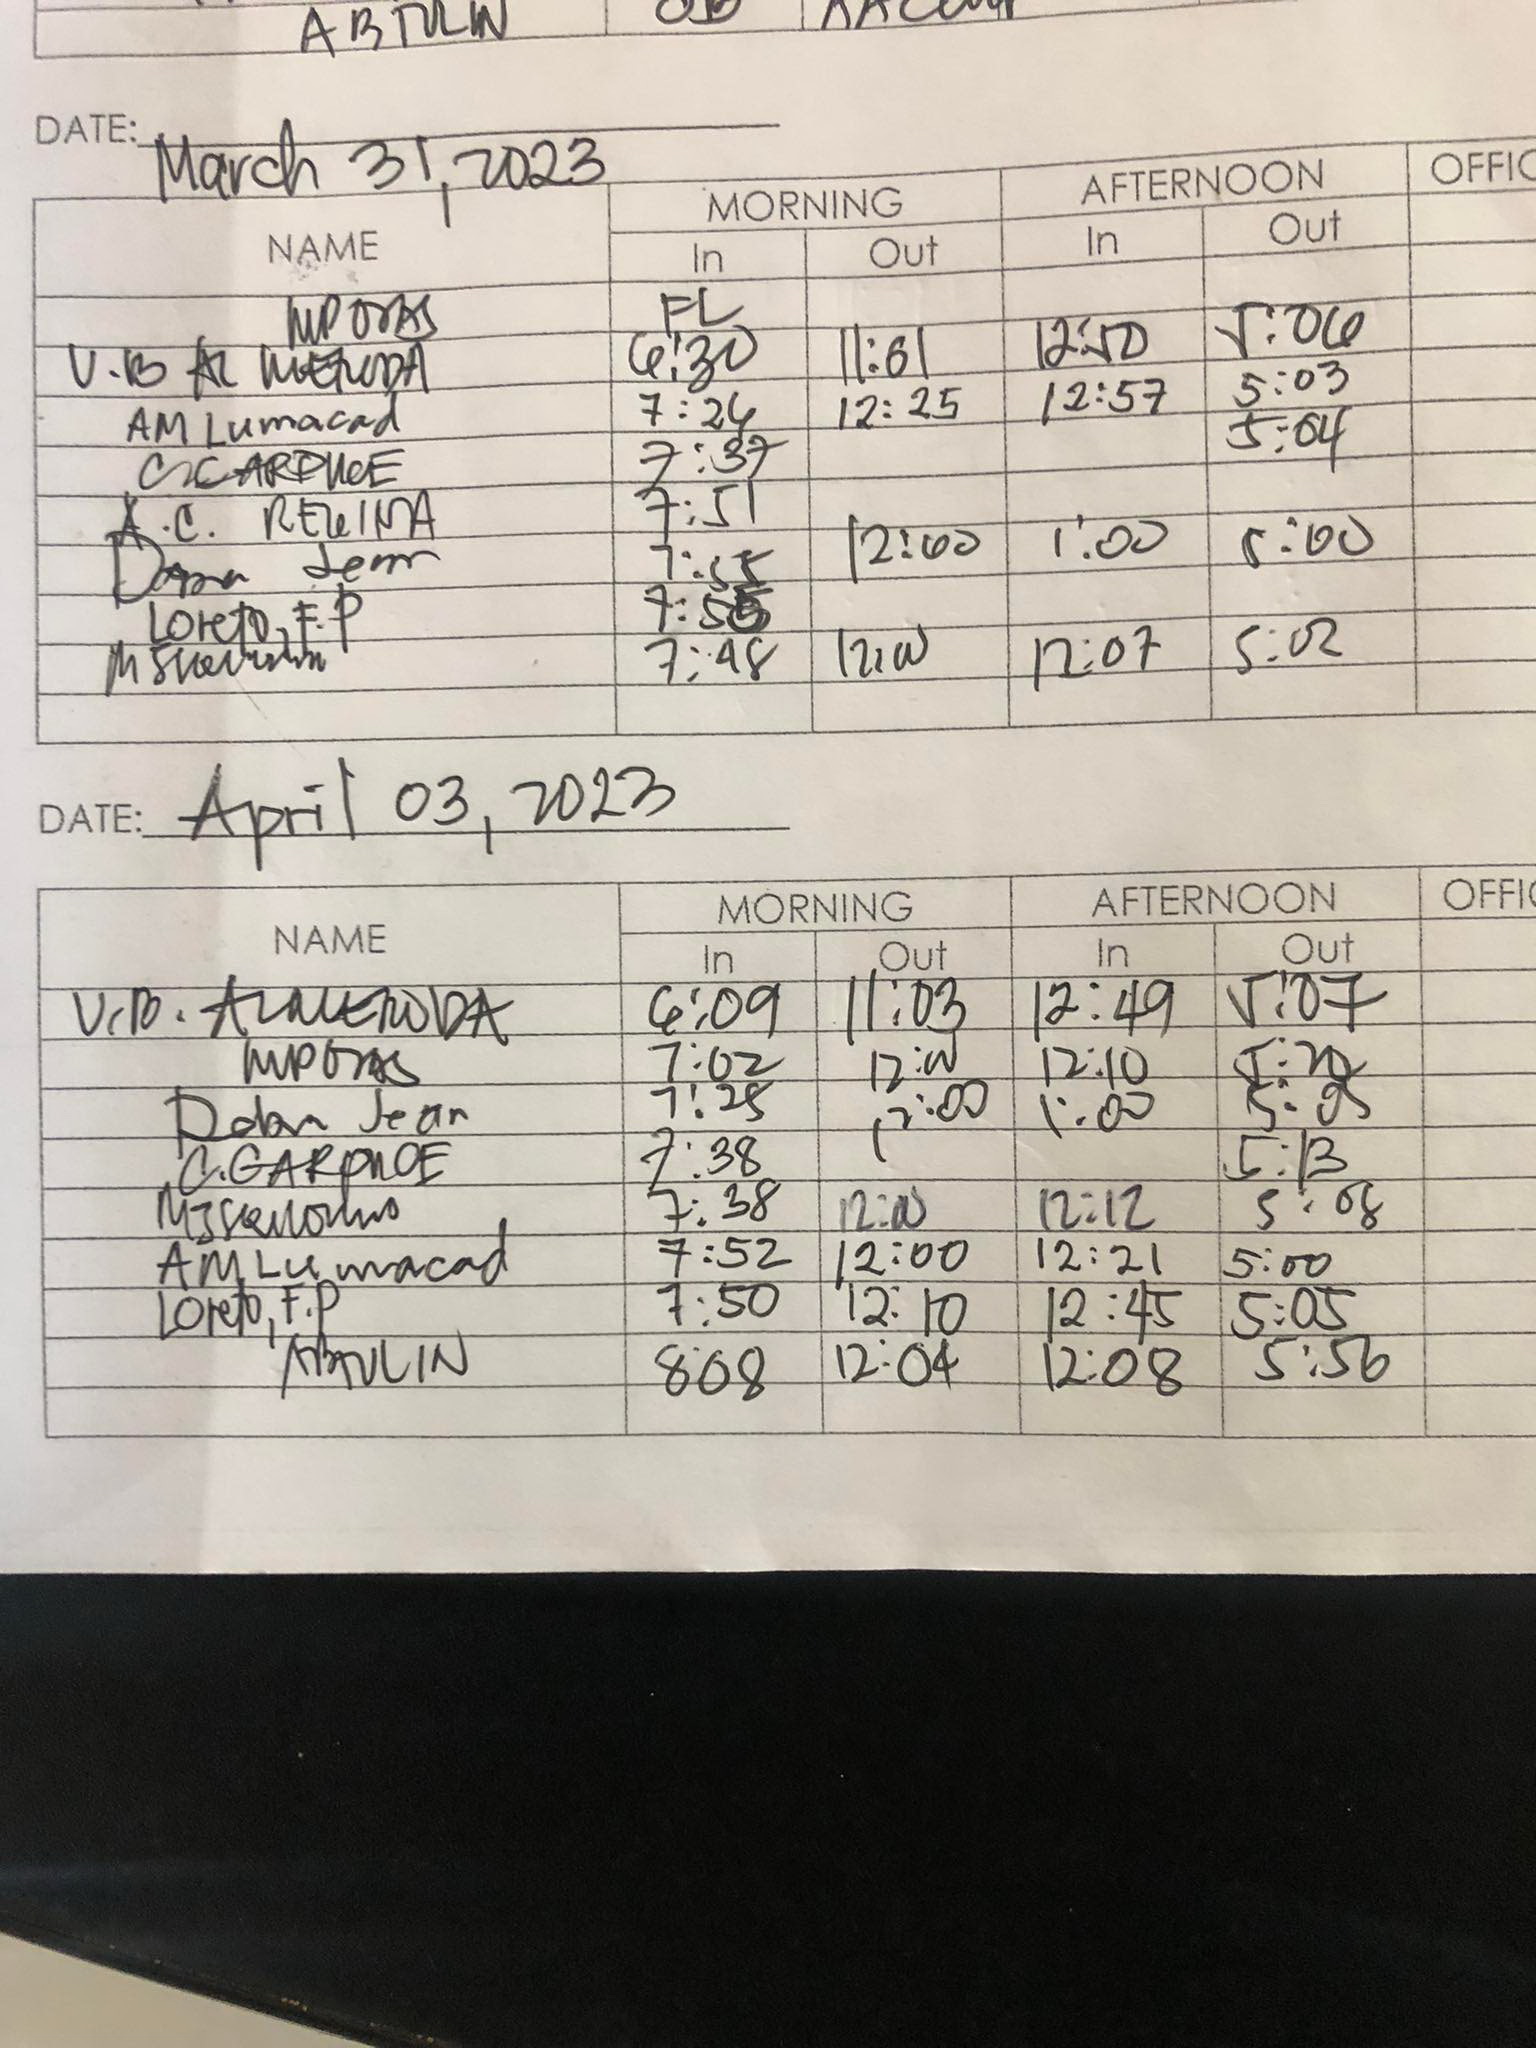 ABTULIN OB
DATE: March 31, 2023
NAME MORNING AFTERNOON OFFIC
In Out In Out
MPORAS FL
V.B ALMERODA 6:30 11:01 12:50 5:06
AM Lumacad 7:26 12:25 12:57 5:03
7:37 5:04
A.C. 7:51
Jean 7:55 12:00 1:00 5:00
Loreto, F.P
7:48 12:00 12:07 5:02
DATE: April 03, 2023
NAME MORNING AFTERNOON OFFIC
In Out In Out
V.B. ALMERODA 6:09 11:03 12:49 5:07
MPORAS 7:02 12:00 12:10 5:20
Jean 7:25 12:00 1:00 5:05
7:38 5:13
7:38 12:00 12:12 5:08
AM Lumacad 7:52 12:00 12:21 5:00
Loreto, F.P 7:50 12:10 12:45 5:05
ABTULIN 808 12:04 12:08 5:56